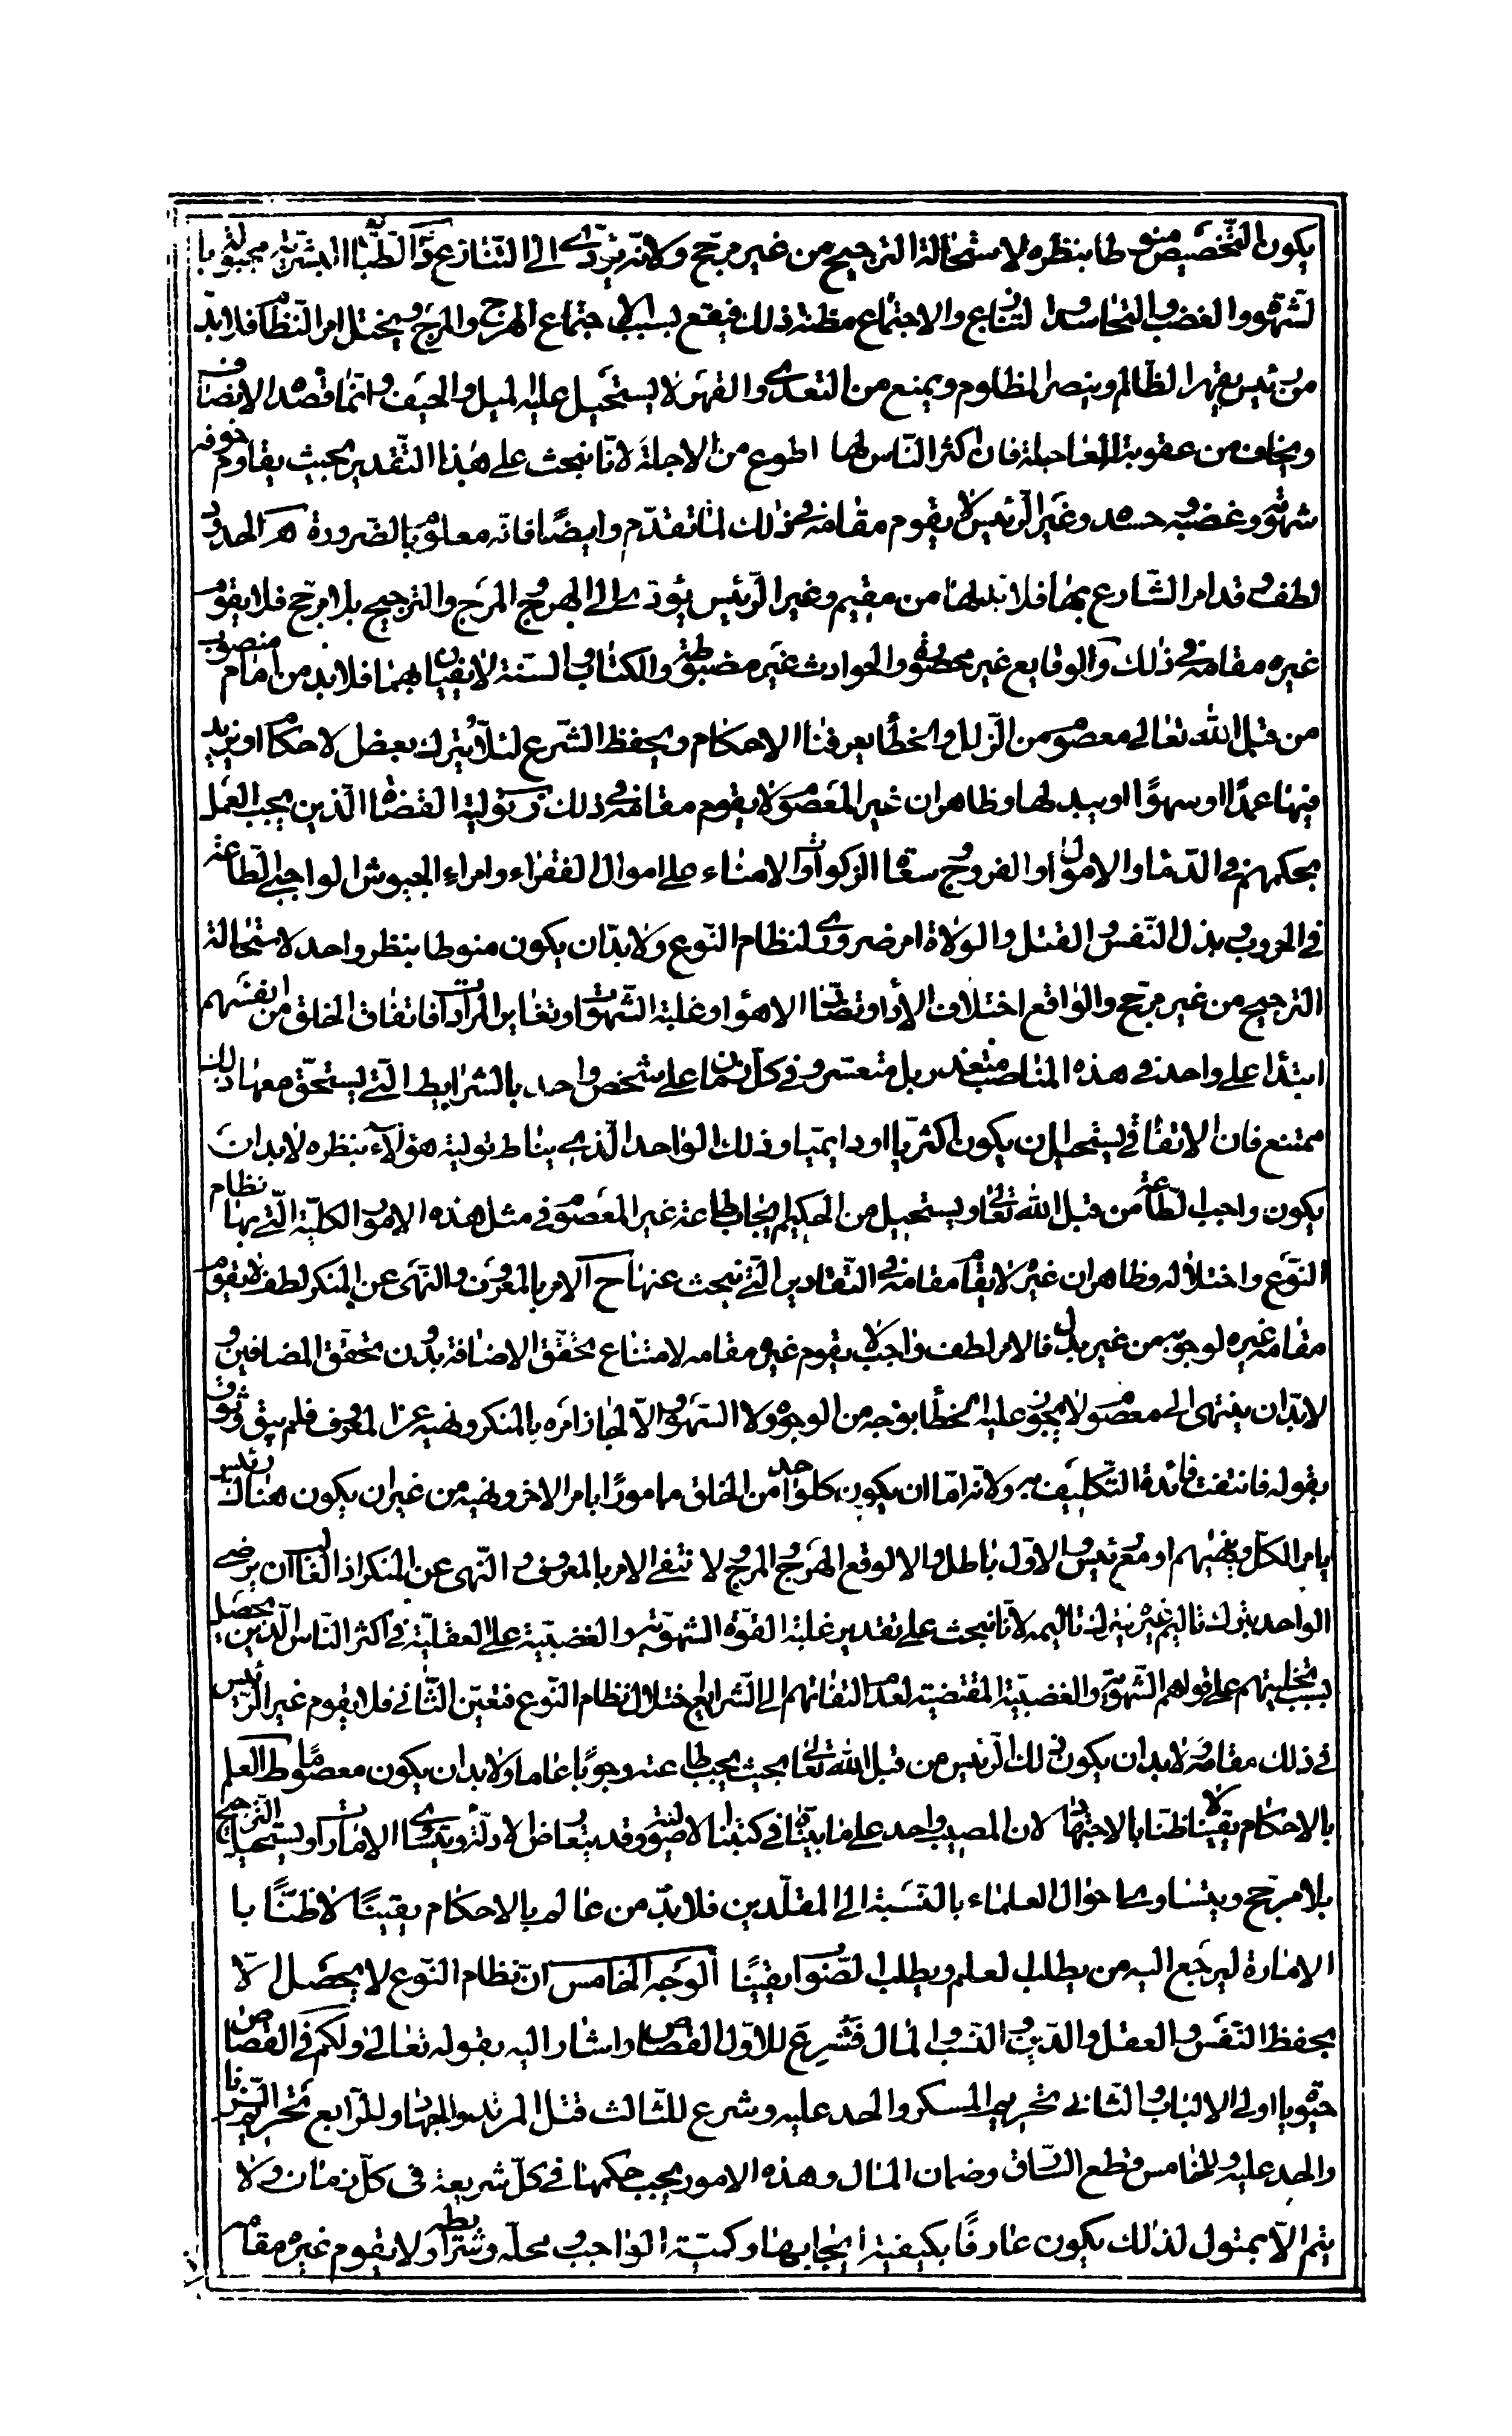 يكون التخصيص منوطا بنظره لاستحالة الترجيح من غير مرجح ولانه يؤدى الى التنازع د الطباا البشرية مجبولة با
لشهوة والغضب والتحاسد والتنازع والاجتماع مظنة ذلك فيقع بسبب الاجتماع الهرج والمرج ويختل امر النظام فلا بد
من رئيس يقهر الظالم وينصر المظلوم ويمنع من التعدى والقهر لا يستحيل عليه الميل والحيف وانما قصده الانصاف
ويخاف من عقوبته العاجلة فان اكثر الناس لها اطوع من الاجلة لانا نبحث على هذا التقدير بحيث يقاوم خوفه
شهوته وغضبه وحسده وغير الرئيس لا يقوم مقامه فى ذلك لما تقدم وايضا فانه معلوم بالضرورة ه الحدود
لطف وقد امر الشارع بها فلا بد لها من مقيم وغير الرئيس يؤدى الى الهرج والمرج والترجيح بلا مرجح فلا يقوم
غيره مقامه فى ذلك و الوقايع غير محصورة والحوادث غير مضبوطة والكتاب والسنة لا يفيان بهما فلا بد من امام منصوب
من قبل الله تعالى معصوم من الزلل والخطأ يعرفنا الاحكام ويحفظ الشرع لئلا يترك بعض الاحكام او يزيد
فيها عمدا او سهوا او يبدلها وظاهر ان غير المعصوم لا يقوم مقامه فى ذلك ز تولية القضاا الذين يجب العمل
بحكمهم فى الدما والاموال والفروج وسعاة الزكوات والامناء على اموال الفقراء وامراء الجيوش الواجب الطاعة
فى الحروب وبذل النفس والقتل والولاة امر ضرورى لنظام النوع ولا بد ان يكون منوطا بنظر واحد لاستحالة
الترجيح من غير مرجح والواقع اختلاف الأراء وتضاد الاهواء وغلبة الشهوات وتغاير المرادات فاتفاق الخلق من انفسهم
ابتدا على واحد فى هذه المناصب متعذر بل متعسر وفى كل زمان على شخص واحد بالشرايط التى يستحق معها ذلك
ممتنع فان الاتفاقى يستحيل ان يكون اكثريا او دايميا وذلك الواحد الذى يناط تولية هؤلآء بنظره لا بد ان
يكون واجب الطاعة من قبل الله تعالى ويستحيل من الحكيم ايجاب طاعة غير المعصوم فى مثل هذه الامور الكلية التى بها نظام
النوع واختلاله وظاهر ان غيره لا يقام مقامه فى التقادير التى نبحث عنها ح الامر بالمعروف والنهى عن المنكر لطف لا يقوم
مقامه غيره لوجوبه من غير بدل فالامر لطف واجب لا يقوم غيره مقامه لامتناع تحقق الاضافة بدون تحقق المضافين و
لا بد ان ينتهى الى معصوم لا يجوز عليه الخطأ بوجه من الوجوه ولا السهو والا لجاز امره بالمنكر ونهيه عن المعروف فلم يبق وثوق
بقوله فانتفت فائدة التكليف به ولانه اما ان يكون كل واحد من الخلق مامورا بامر الاخر ونهيه من غير ان يكون هناك رئيس
يامر الكل وينهيهم او مع رئيس والاول باطل والا لوقع الهرج والمرج لانتفى الامر بالمعروف والنهى عن المنكر اذ الغالب ان يرضى
الواحد بترك تاليم غيره بترك تاليمه لانا نبحث على تقدير غلبة القوة الشهوية والغضبية على العقلية فى اكثر الناس الذين يحصل
بسبب تخليتهم على قولهم الشهوية والغضبية المقتضية لعدم التفاتهم الى الشرايع اختلال نظام النوع فتعين الثانى فلا يقوم غير الرئيس
فى ذلك مقامه ولا بد ان يكون ذلك الرئيس من قبل الله تعالى بحيث يجب طاعته وجوبا عاما ولا بد ان يكون معصوما ط العلم
بالاحكام يقينا لا ظنا بالاجتهاد لان المصيب واحد على ما بيناه فى كتبنا الاصولية وقد يتعارض الادلة ويتساوى الامارات ويستحيل الترجيح
بلا مرجح ويتساوى احوال العلماء بالنسبة الى المقلدين فلا بد من عالم بالاحكام يقينا لا ظنا با
الامارة ليرجع اليه من يطلب العلم ويطلب الصواب يقينا الوجه الخامس ان نظام النوع لا يحصل الا
بحفظ النفس والعقل والدين والنسب والمال فشرع للاول القصاص واشار اليه بقوله تعالى ولكم فى القصاص
حيوة يا اولى الالباب والثانى تحريم المسكر والحد عليه وشرع للثالث قتل المرتد والجهاد وللرابع تحريم الزنا
والحد عليه وللخامس قطع السارق وضمان المال وهذه الامور يجب حكمها فى كل شريعة فى كل زمان ولا
يتم الا بمتول لذلك يكون عارفا بكيفية ايجابها وكمية الواجب ومحله وشرايطه ولا يقوم غيره مقامه